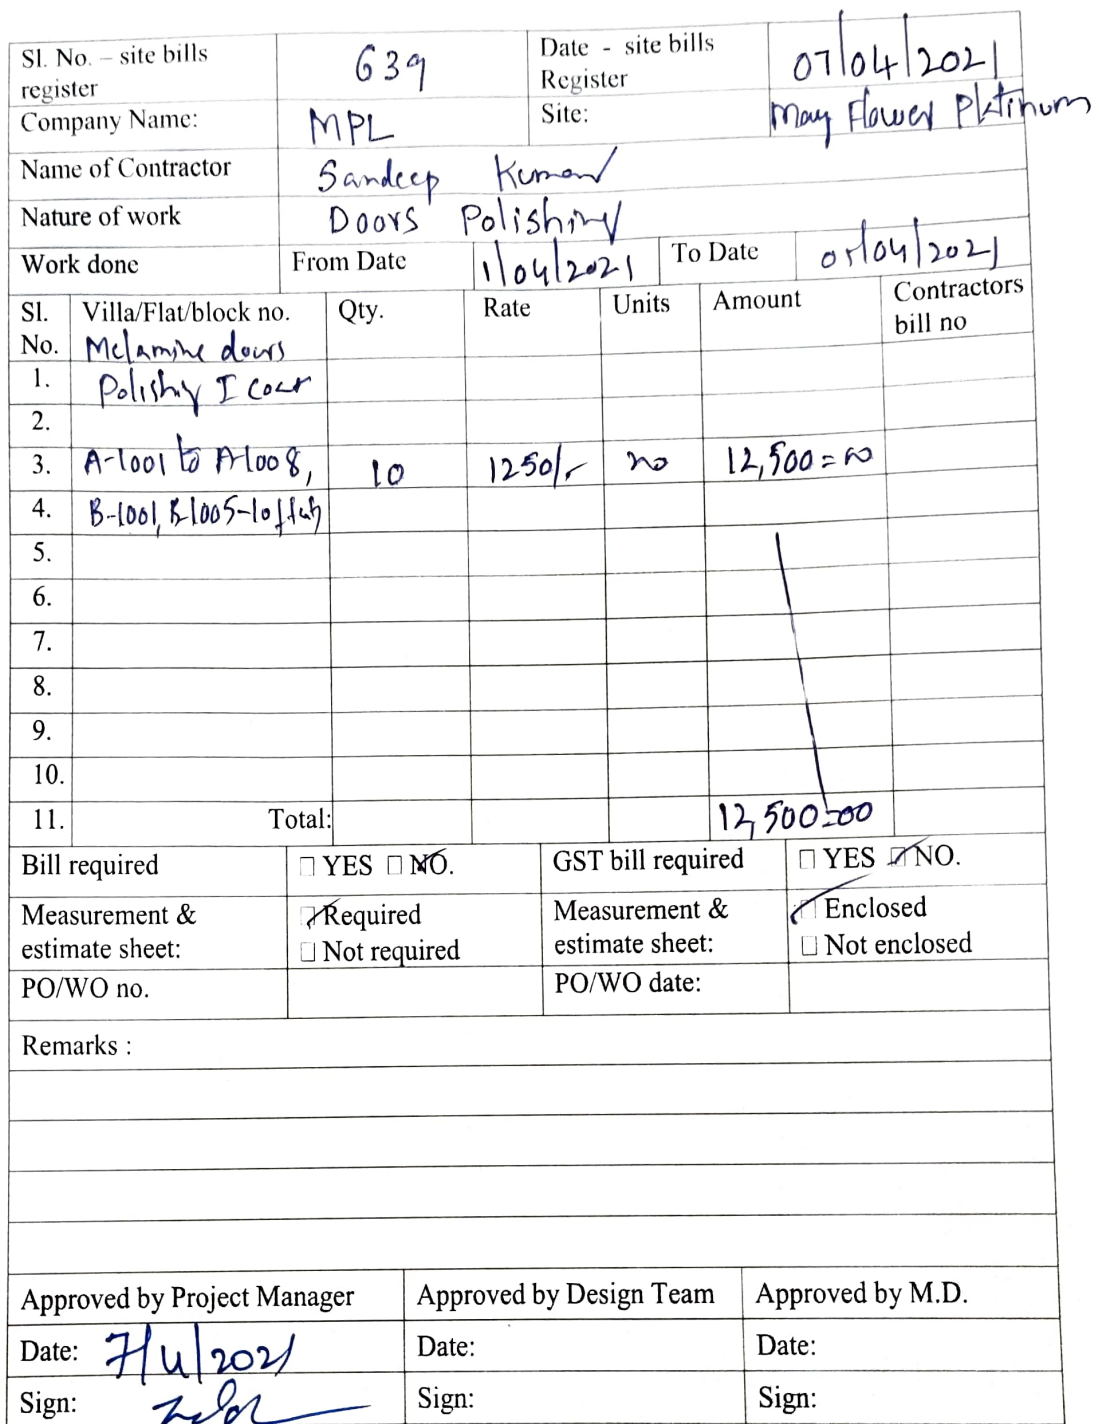 Sl. No. – site bills register 639 Date - site bills Register 07/04/2021
Company Name: MPL Site: May Flower Platinum
Name of Contractor Sandeep Kumar
Nature of work Doors Polishing
Work done From Date 1/04/2021 To Date 05/04/2021
Sl. No. Villa/Flat/block no. Qty. Rate Units Amount Contractors bill no
Melamine doors
1. Polishing I coat
2.
3. A-1001 to A-1008, 10 1250/- no 12,500=00
4. B-1001, B-1005-10
5.
6.
7.
8.
9.
10.
11. Total: 12,500=00
Bill required ☐ YES ☐ NO. GST bill required ☐ YES ☐ NO.
Measurement & estimate sheet: Required Measurement & estimate sheet: Enclosed
☐ Not required ☐ Not enclosed
PO/WO no. PO/WO date:
Remarks :
Approved by Project Manager Approved by Design Team Approved by M.D.
Date: 7/4/2021 Date: Date:
Sign: Sign: Sign: